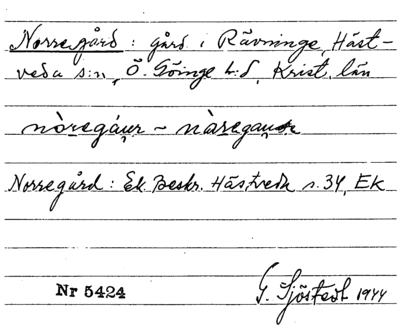 Norregård : gård i Rävninge, Häst-
veda s:n, Ö. Göinge h:d, Krist. län
nòregáur ~ nàregaur
Norregård : Ek. Beskr. Hästveda s. 34, Ek
Nr 5424
G. Sjöstedt 1944